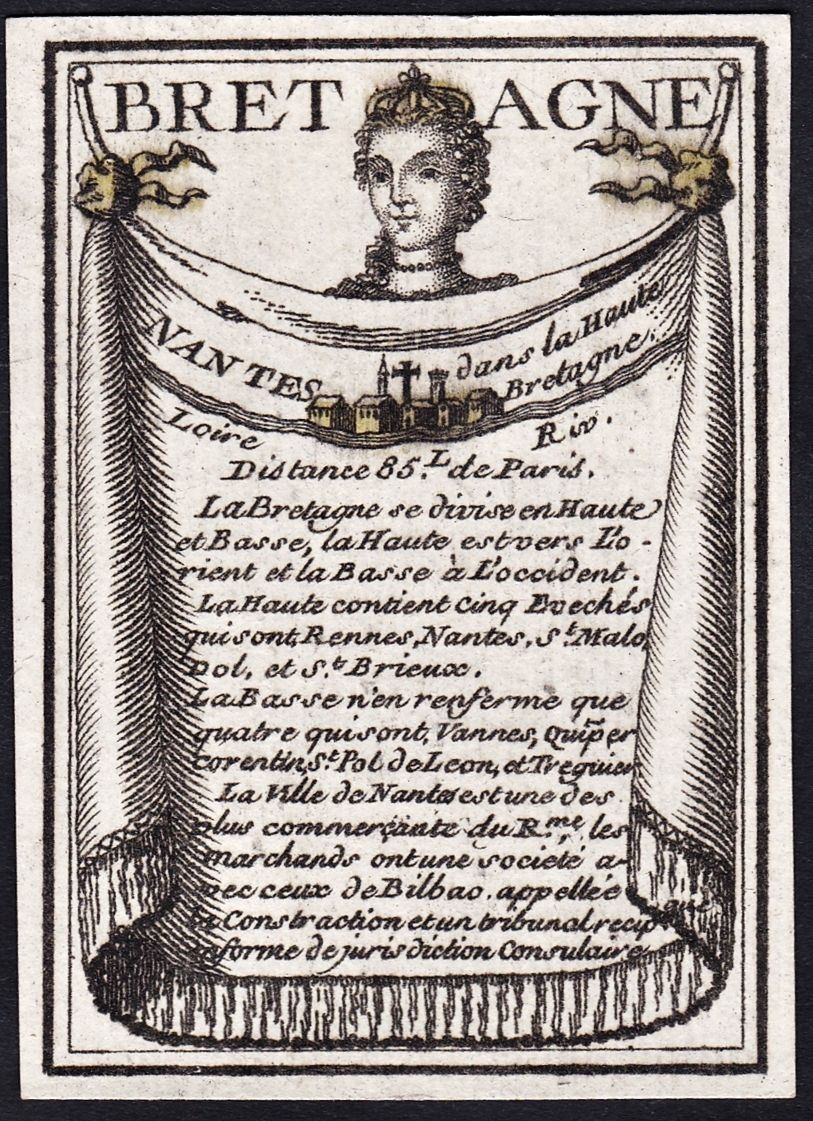 BRETAGNE
NANTES dans la Haute
Bretagne.
Loire Riv.
Distance 85.L de Paris.
La Bretagne se divise en Haute
et Basse, la Haute est vers L'o-
rient et la Basse à L'occident.
La Haute contient cinq Evechés
qui sont, Rennes, Nantes, St. Malo,
Dol, et St. Brieux.
La Basse n'en renferme que
quatre qui sont, Vannes, Quiper
corentin, St. Pol de Leon, et Treguier
La Ville de Nantes est une des
plus commerçante du R.me, les
marchands ont une societé a-
vec ceux de Bilbao. appellée
la Constraction et un tribunal recip
que
en forme de jurisdiction Consulaire